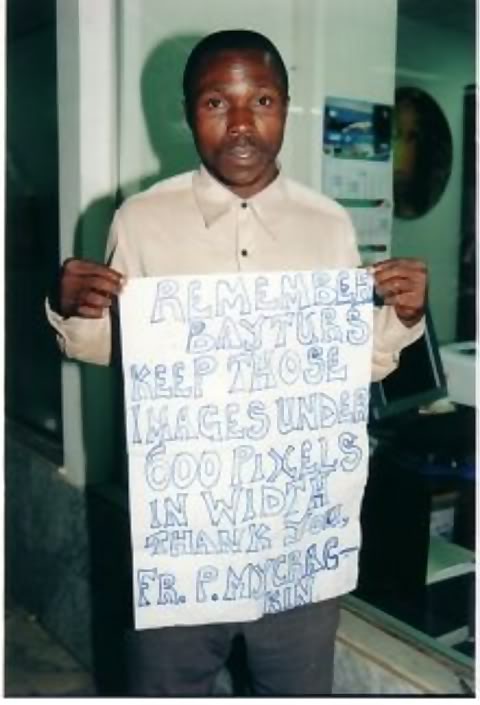 REMEMBER
BAYTURS
KEEP THOSE
IMAGES UNDER
600 PIXELS
IN WIDTH
THANK YOU,
FR. P. MYCRAG-
KIN